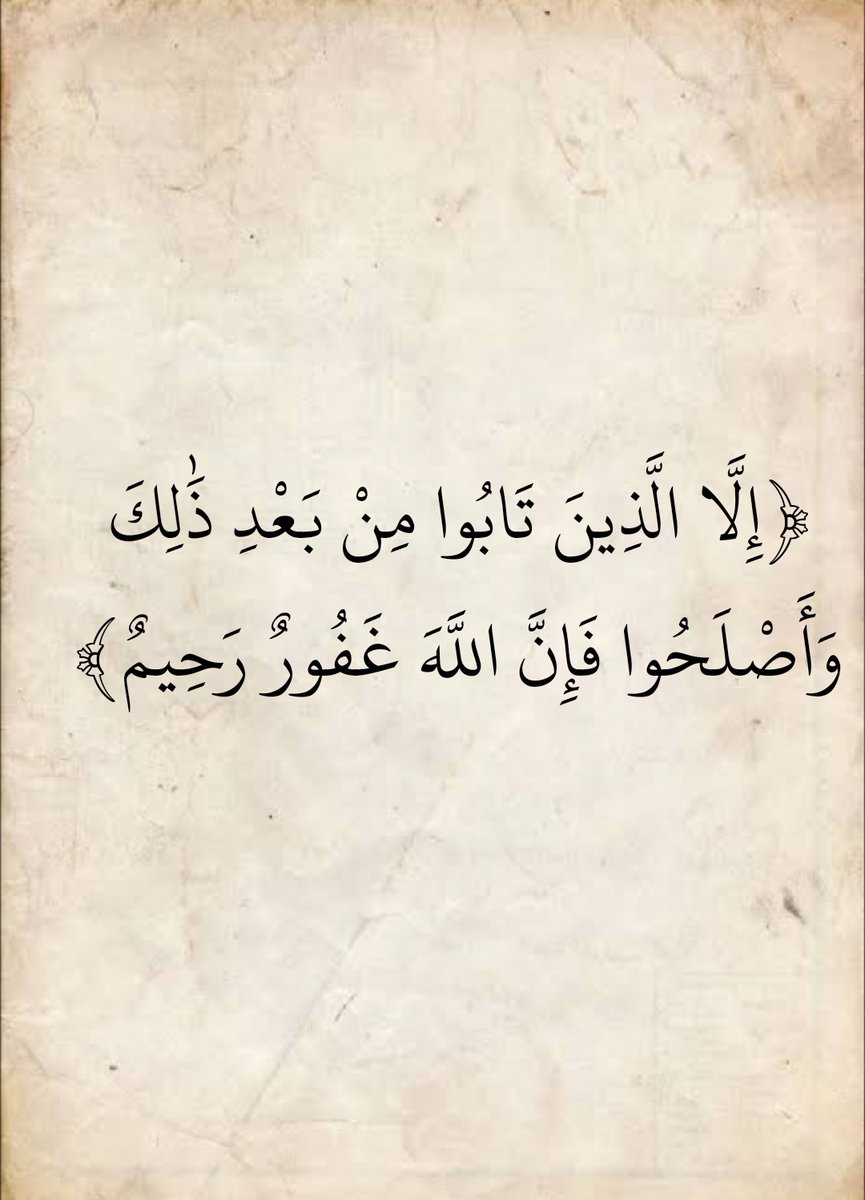 ﴿إِلَّا الَّذِينَ تَابُوا مِنْ بَعْدِ ذَٰلِكَ
وَأَصْلَحُوا فَإِنَّ اللَّهَ غَفُورٌ رَحِيمٌ﴾